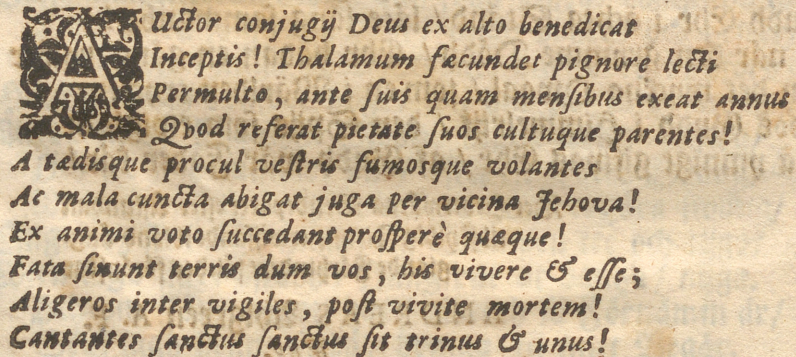 AUctor conjugij Deus ex alto benedicat
Inceptis! Thalamum fæcundet pignore lecti
Permulto, ante ſuis quam menſibus exeat annus
Qvod referat pietate ſuos cultuque parentes!
A tædisque procul veſtris fumosque volantes
Ac mala cuncta abigat juga per vicina Jehova!
Ex animi voto ſuccedant proſperè quæque!
Fata ſinunt terris dum vos, his vivere & eſſe;
Aligeros inter vigiles, poſt vivite mortem!
Cantantes ſanctus ſanctus ſit trinus & unus!